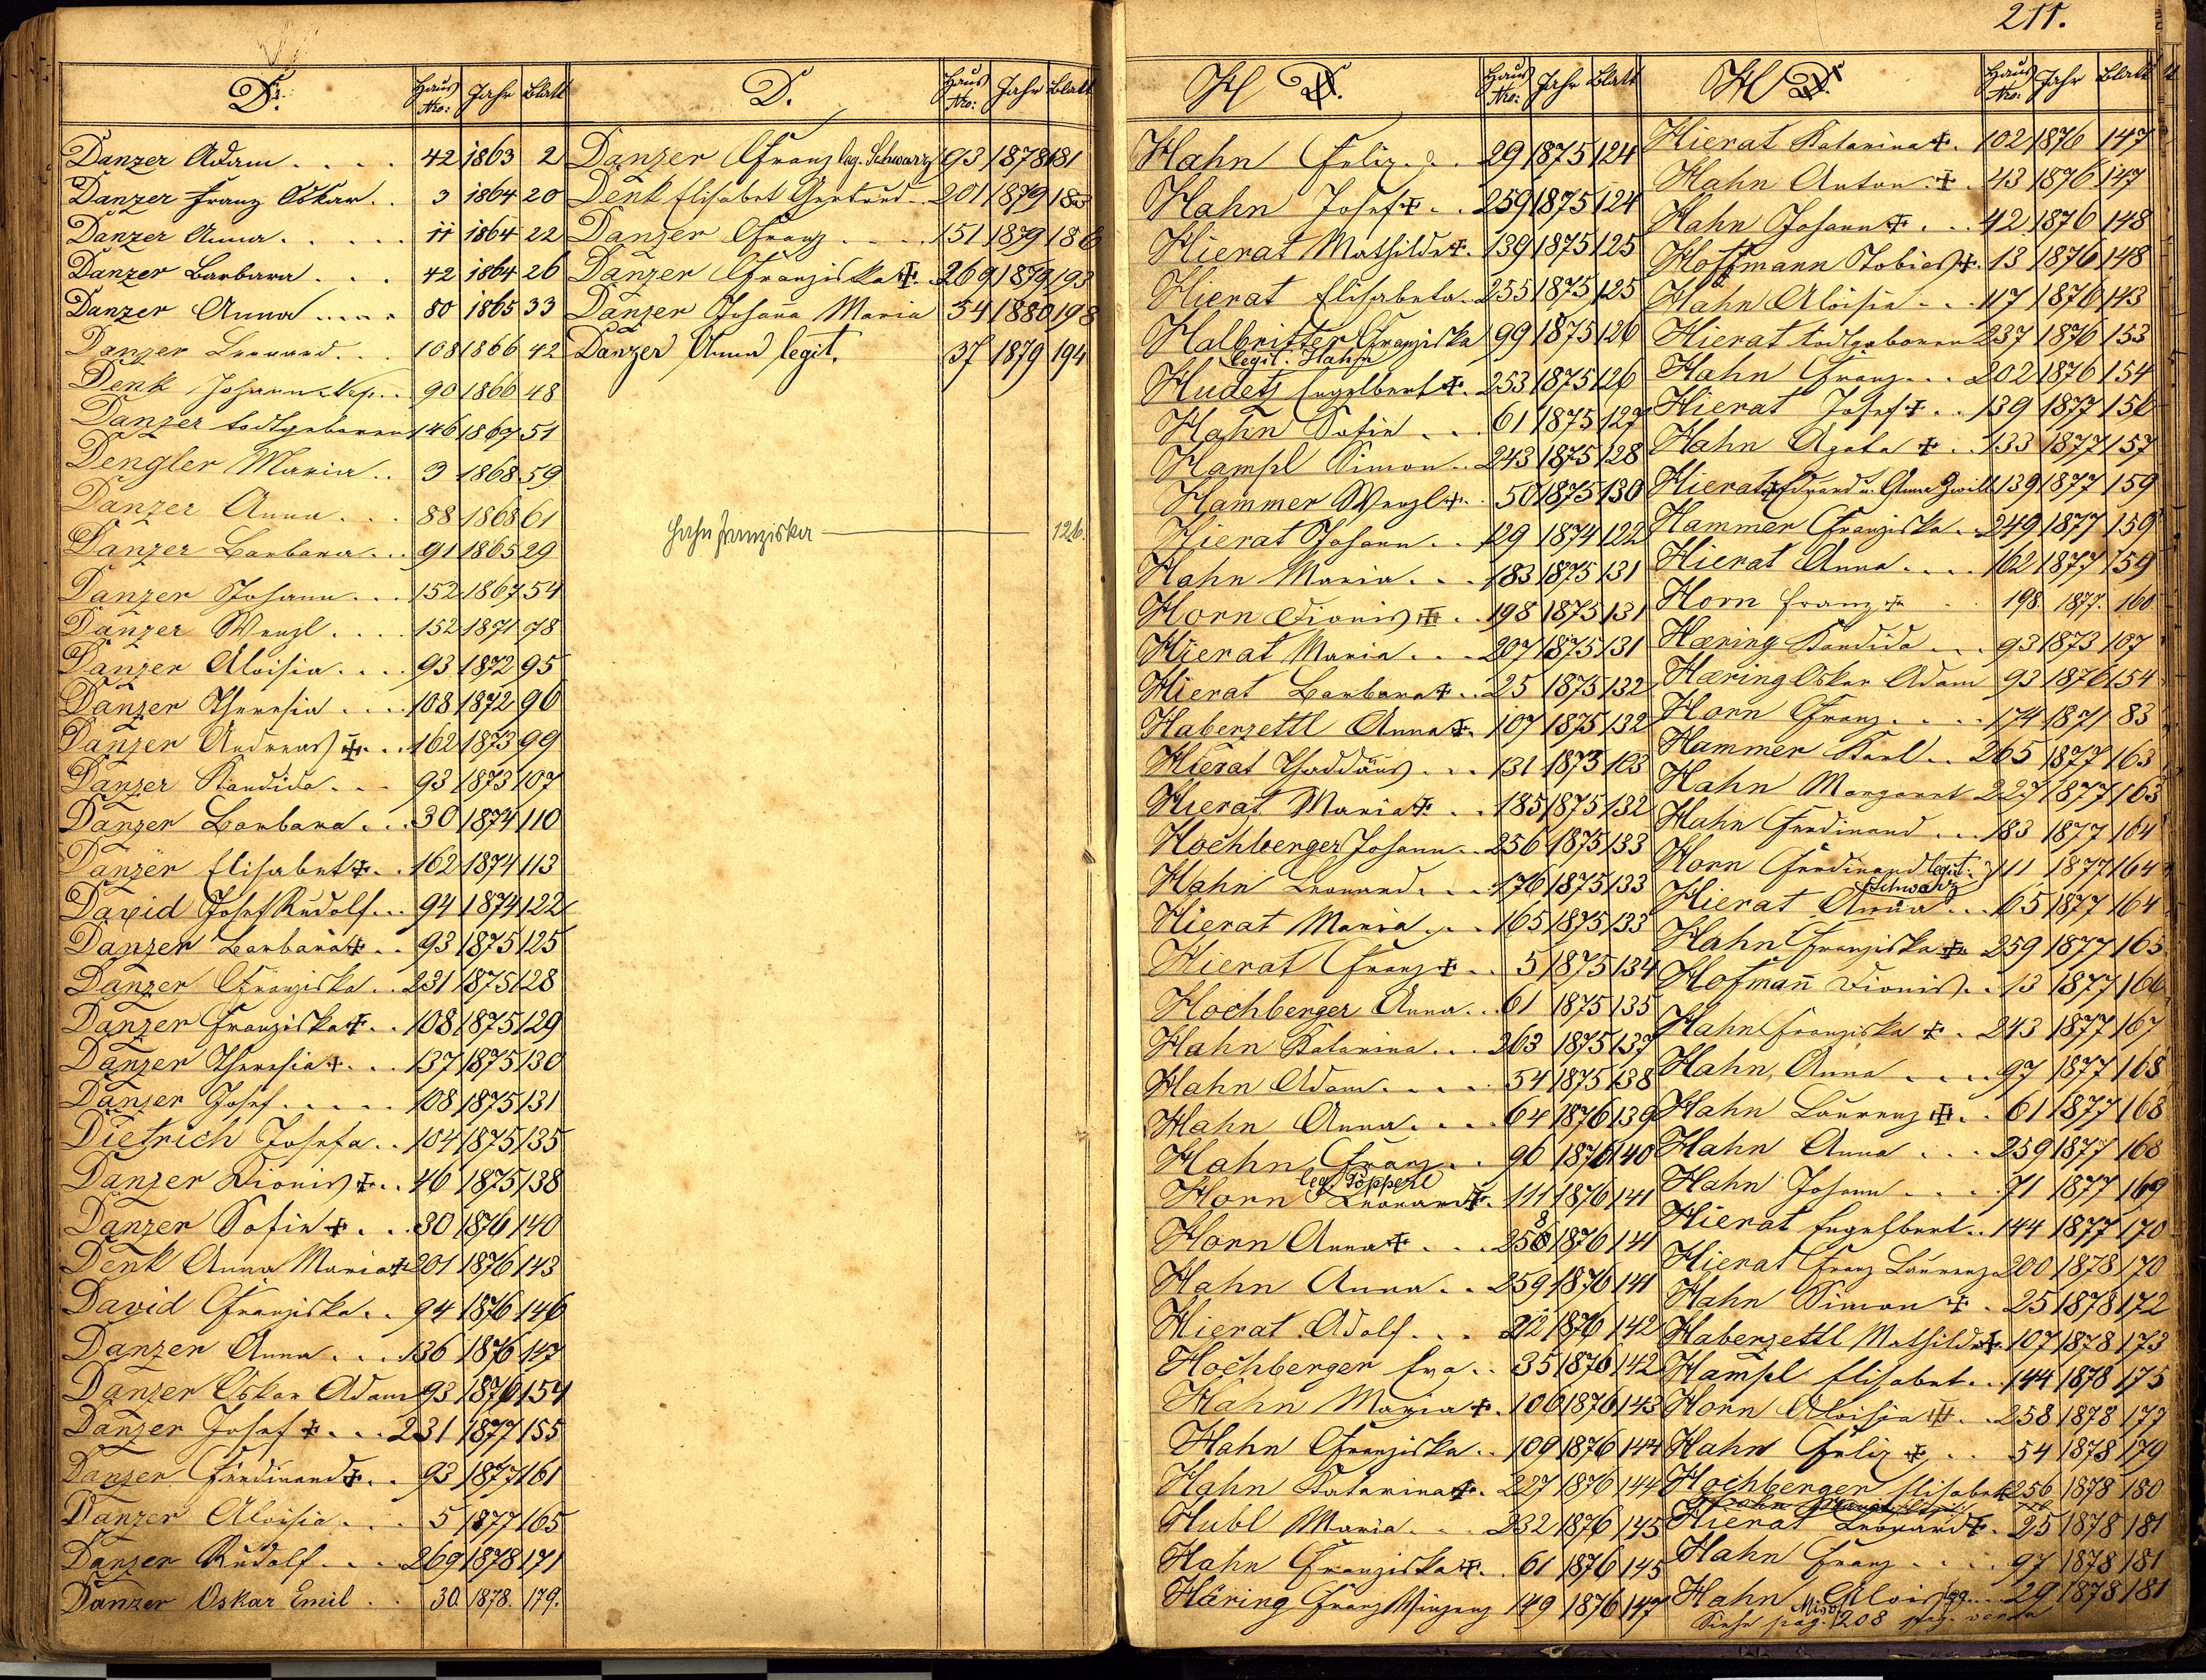 211.
D. Haus Nro: Jahr Blatt
Danzer Adam . . . . 42 1863 2
Danzer Franz Oskar . . 3 1864 20
Danzer Anna . . . . . 11 1864 22
Danzer Barbara . . . 42 1864 26
Danzer Anna . . . . . 80 1865 33
Danzer Leonard . . . 108 1866 42
Denk Johann Nep. . . 90 1866 48
Danzer todtgeboren 146 1867 51
Dengler Maria . . 3 1868 59
Danzer Anna . . . 88 1868 61
Danzer Barbara . . . 91 1865 29
Danzer Johann . . . 152 1867 54
Danzer Wenzl . . . . 152 1871 78
Danzer Aloisia . . . . 93 1872 95
Danzer Theresia . . . . 108 1872 96
Danzer Andreas ‡ . . . 162 1873 99
Danzer Kandida . . . 93 1873 107
Danzer Barbara . . . 30 1874 110
Danzer Elisabet ‡ . . 162 1874 113
David Josef Rudolf . . . 94 1874 122
Danzer Barbara ‡ . . 93 1875 125
Danzer Franziska . . 231 1875 128
Danzer Franziska ‡ . . 108 1875 129
Danzer Theresia ‡ . . . 137 1875 130
Danzer Josef . . . . . 108 1875 131
Dietrich Josefa . . 104 1875 135
Danzer Dionis ‡ . . 46 1875 138
Danzer Sofie ‡ . . . 30 1876 140
Denk Anna Maria ‡ 201 1876 143
David Franziska . . 94 1876 146
Danzer Anna . . . 136 1876 147
Danzer Oskar Adam 93 1876 154
Danzer Josef ‡ . . . 231 1877 155
Danzer Ferdinand ‡ . . 93 1877 161
Danzer Aloisia . . . 5 1877 165
Danzer Rudolf . . . . 269 1878 171
Danzer Oskar Emil . . 30. 1878. 179.
D. Haus Nro: Jahr Blatt
Danzer Franz leg. Schwarz 93 1878 181
Denk Elisabet Gertrud . . 201 1879 183
Danzer Franz . . . . 151 1879 186
Danzer Franziska ‡ . 269 1879 193
Danzer Johana Maria 54 1880 198
Danzer Anna legit. 37 1879 194
Hahn Franziska 126.
H D. Haus Nro: Jahr Blatt
Hahn Felix . . . 29 1875 124
Hahn Josef ‡ . . 259 1875 124
Hierat Mathilde ‡ . 139 1875 125
Hierat Elisabeta . 255 1875 125
Halbritter Franziska 99 1875 126
legit. Hahn
Hudetz Engelbert ‡ . 253 1875 126
Hahn Sofie . . . 61 1875 127
Hampl Simon . . 243 1875 128
Hammer Wenzl ‡ . . 50 1875 130
Hierat Johann . . 129 1874 122
Hahn Maria . . . 183 1875 131
Horn Dionis ‡ . . 198 1875 131
Hierat Maria . . . 207 1875 131
Hierat Barbara ‡ . . 25 1875 132
Haberzettl Anna ‡ . 107 1875 132
Hierat Thaddäus . . . 131 1873 103
Hierat Maria ‡ . . . 185 1875 132
Hochberger Johann . . 256 1875 133
Hahn Leonard . . . . 176 1875 133
Hierat Maria . . . 165 1875 133
Hierat Franz ‡ . . 5 1875 134
Hochberger Anna . . 61 1875 135
Hahn Katarina . . . 263 1875 137
Hahn Adam . . . . . 54 1875 138
Hahn Anna . . . . 64 1876 139
Hahn Franz . . . 96 1876 140
leg. Pöpperl
Horn Leonard ‡ . 111 1876 141
Horn Anna ‡ . . . 258 1876 141
Hahn Anna . . . 259 1876 141
Hierat Adolf . . . 212 1876 142
Hochberger Eva . . 35 1876 142
Hahn Maria ‡ . 106 1876 143
Hahn Franziska . . 109 1876 144
Hahn Katarina ‡ . . 227 1876 144
Hubl Maria . . . 232 1876 145
Hahn Franziska ‡ . . 61 1876 145
Häring Franz Vinzenz 149 1876 147
H D. Haus Nro: Jahr Blatt
Hierat Katarina ‡ . 102 1876 147
Hahn Anton . ‡ . . 43 1876 147
Hahn Johann ‡ . . . 42 1876 148
Hoffmann Tobias ‡ . 13 1876 148
Hahn Aloisia . . . 117 1876 143
Hierat todtgeboren 237 1876 153
Hahn Franz . . . 202 1876 154
Hierat Josef ‡ . . 139 1877 156
Hahn Agata ‡ . . 133 1877 157
Hierat Eduard u. Anna Zwill. 139 1877 159
Hammer Franziska . 249 1877 159
Hierat Anna . . . . 162 1877 159
Horn Franz ‡ . . 198. 1877. 160
Hæring Kandida . . . 93 1873 107
Hæring Oskar Adam 93 1876 154
Horn Franz . . . . . 174 1871 83
Hammer Karl . . 265 1877 163
Hahn Margaret 227 1877 163
Hahn Ferdinand . . . 183 1877 164
Horn Ferdinand legit. 111 1877 164
Schwarz
Hierat Anna . . . 65 1877 164
Hahn Franziska ‡ . 259 1877 165
Hofmann Dionis . . 13 1877 166
Hahn Franziska ‡ . . 243 1877 167
Hahn Anna . . . . . 97 1877 168
Hahn Laurenz ‡ . . 61 1877 168
Hahn Anna . . . . 259 1877 168
Hahn Johann . . . . . 71 1877 169
Hierat Engelbert . . 144 1877 170
Hierat Franz Laurenz 200 1878 170
Hahn Simon ‡ . . 25 1878 172
Haberzettl Mathilde ‡ . 107 1878 173
Hampl Elisabet . . . 144 1878 175
Horn Aloisia ‡ . . . 258 1878 177
Hahn Felix ‡ . . . 54 1878 179
Hochberger Elisabet 256 1878 180
Hierat Leonard ‡ . . 25 1878 181
Hahn Franz . . . . . 97 1878 181
Hahn Alois leg. . . 29 1878 181
Siehe pag. 208